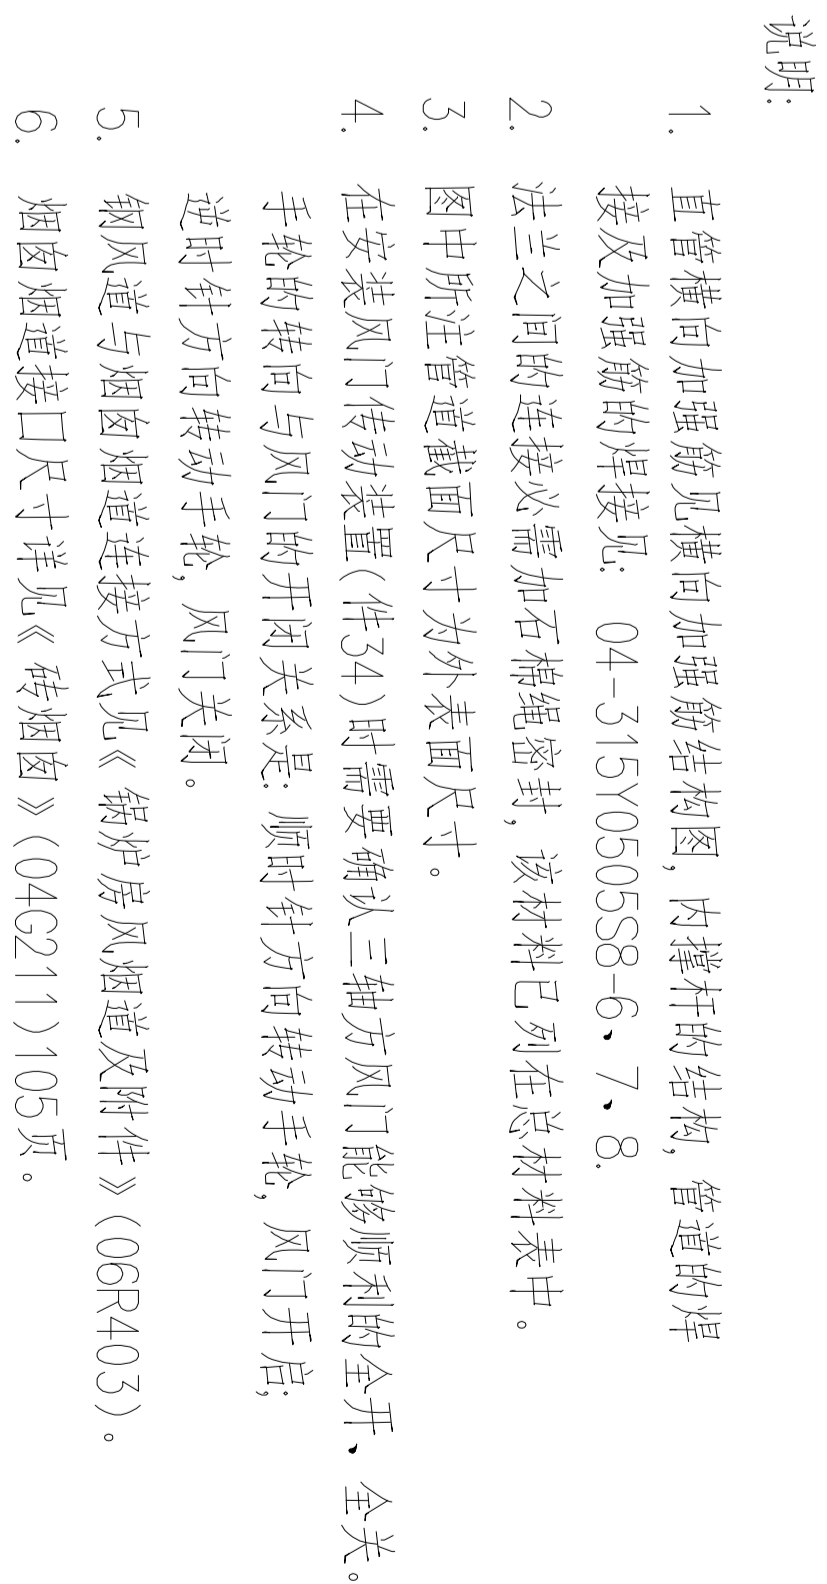 说明:
1. 直管横向加强筋见横向加强筋结构图, 内撑杆的结构, 管道的焊
接及加强筋的焊接见: 04-315Y0505S8-6、7、8.
2. 法兰之间的连接必需加石棉绳密封, 该材料已列在总材料表中。
3. 图中所注管道截面尺寸为外表面尺寸。
4. 在安装风门传动装置(件34)时需要确认三轴方风门能够顺利的全开、全关。
手轮的转向与风门的开闭关系是: 顺时针方向转动手轮, 风门开启;
逆时针方向转动手轮, 风门关闭。
5. 钢风道与烟囱烟道连接方式见《锅炉房风烟道及附件》(06R403)。
6. 烟囱烟道接口尺寸详见《砖烟囱》(04G211)105页。